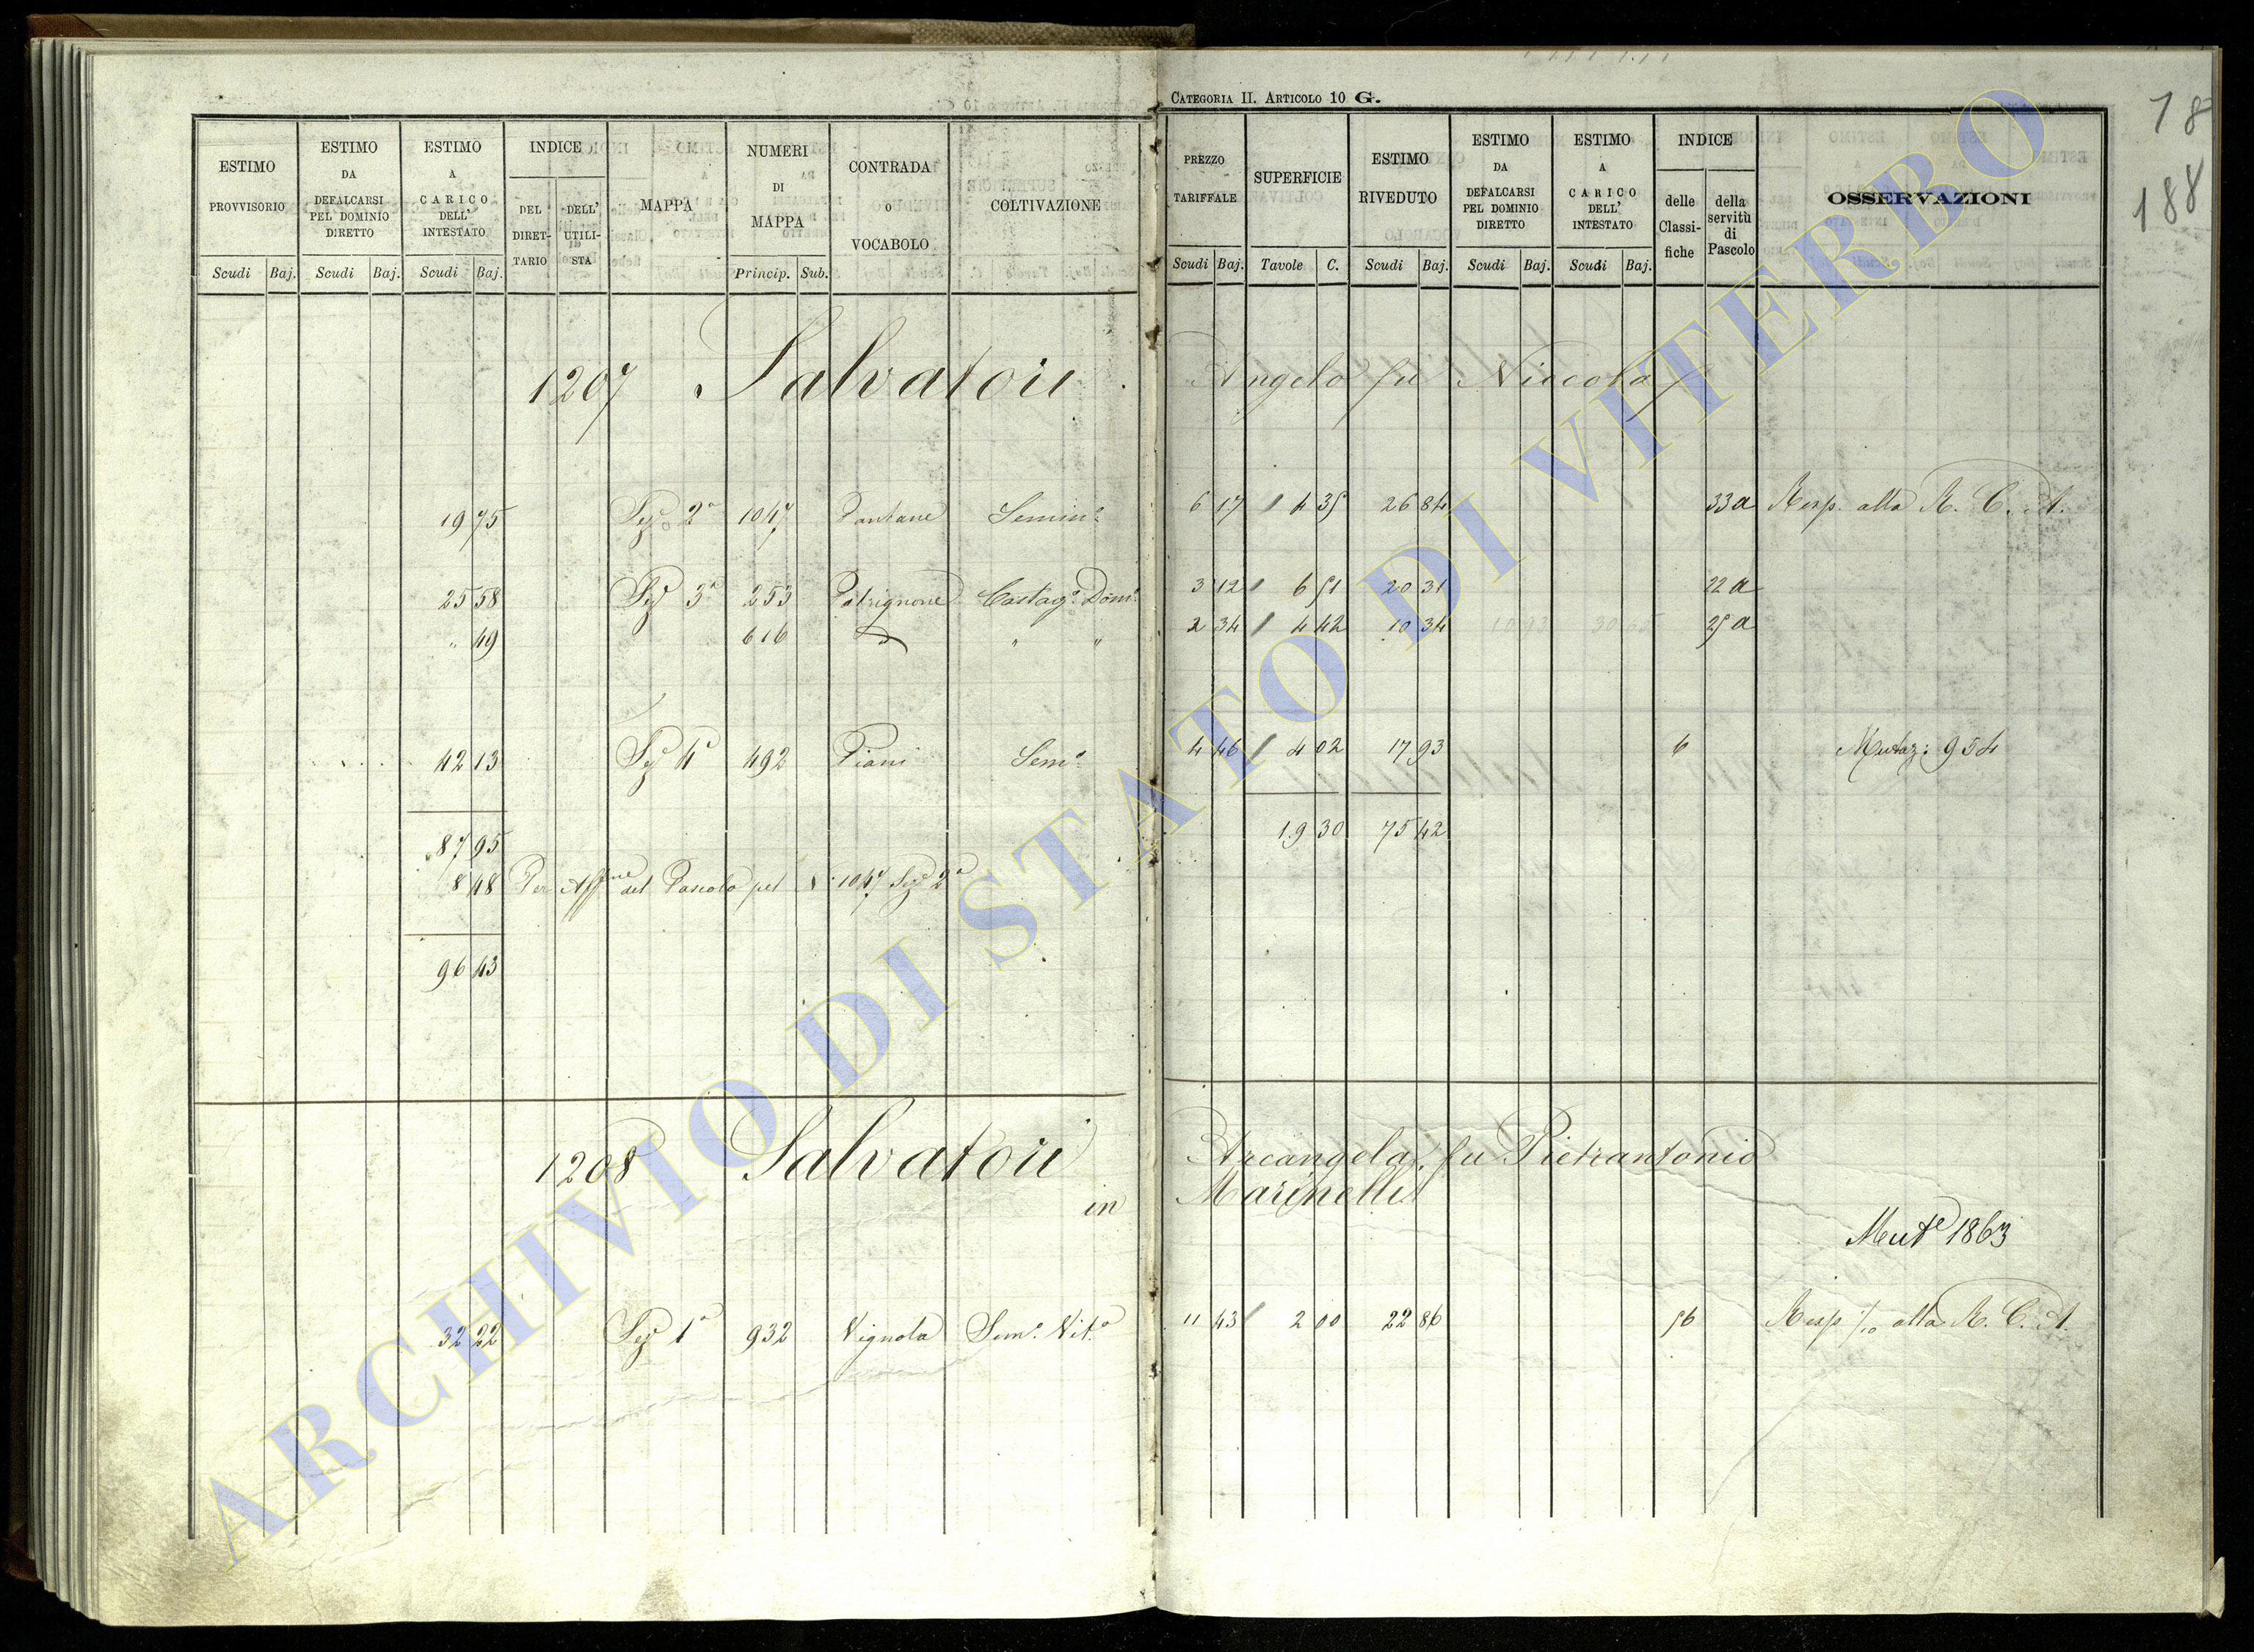 CATEGORIA II. ARTICOLO 10 G.
18
188
ESTIMO PROVVISORIO
Scudi Baj.
ESTIMO DA DEFALCARSI PEL DOMINIO DIRETTO
Scudi Baj.
ESTIMO A CARICO DELL' INTESTATO
Scudi Baj.
INDICE
DEL DIRET-TARIO
DELL' UTILI-STA
MAPPA
NUMERI DI MAPPA
Princip. Sub.
CONTRADA o VOCABOLO
COLTIVAZIONE
PREZZO TARIFFALE
Scudi Baj.
SUPERFICIE
Tavole C.
ESTIMO RIVEDUTO
Scudi Baj.
ESTIMO DA DEFALCARSI PEL DOMINIO DIRETTO
Scudi Baj.
ESTIMO A CARICO DELL' INTESTATO
Scudi Baj.
INDICE
delle Classi-fiche
della servitù di Pascolo
OSSERVAZIONI
1207 Salvatori Angelo fu Niccola
19 75 Sez. 2a 1047 Pantane Semino 6 17 4 35 26 84 33a Resp. alla R. C. A.
25 58 Sez 3a 253 Patrignone Castago. Domo 3 12 6 51 20 31 22 a
" 49 616 " " 2 34 4 42 10 34 25 a
42 13 Sez 4a 492 Piani Semo 4 46 4 02 17 93 6 Mutaz: 954
87 95 19 30 75 42
8 48 Per Affne del Pascolo pel N. 1047 Sez 2a
96 43
1208 Salvatori Arcangela fu Pietrantonio
in Marinelli
Mute 1863
32 22 Sez 1a 932 Vignola Semo. Vito 11 43 2 00 22 86 56 Resp alla R. C. A.
ARCHIVIO DI STATO DI VITERBO